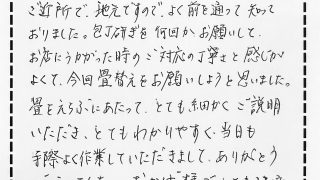 ご近所で、地元ですので、よく前を通って知って
おりました。包丁研ぎを何回かお願いして、
お店にうかがった時のご対応の丁寧さと感じが
よくて、今回畳替えをお願いしようと思いました。
畳をえらぶにあたって、とても細かくご説明
いただき、とてもわかりやすく、当日も
手際よく作業していただきまして、ありがとう